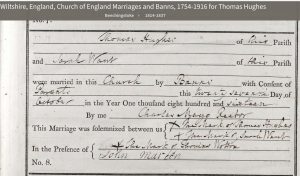 Wiltshire, England, Church of England Marriages and Banns, 1754-1916 for Thomas Hughes
Beechingstoke > 1814-1837
Thomas Hughes of this Parish
and Sarah Want of this Parish
were married in this Church by Banns with Consent of
Parents this twenty seventh Day of
October in the Year One thousand eight hundred and sixteen
By me Charles Rector
This Marriage was solemnized between us { X The Mark of Thomas Hughes
X The Mark of Sarah Want
In the Presence of { X The Mark of Thomas
John
No. 8.